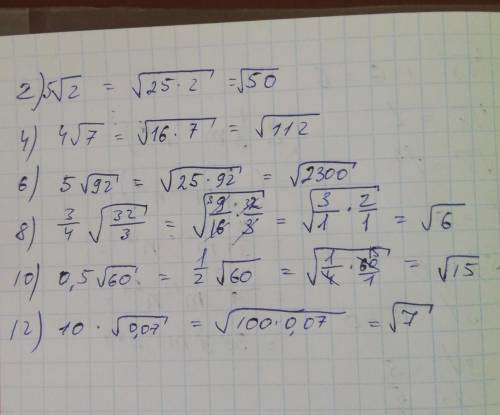 2) 5√2 = √25·2 = √50
4) 4√7 = √16·7 = √112
6) 5√92 = √25·92 = √2300
8) 3/4 √32/3 = √9/16·32/3 = √3/1·2/1 = √6
10) 0,5√60 = 1/2 √60 = √1/4·60/1 = √15
12) 10·√0,07 = √100·0,07 = √7